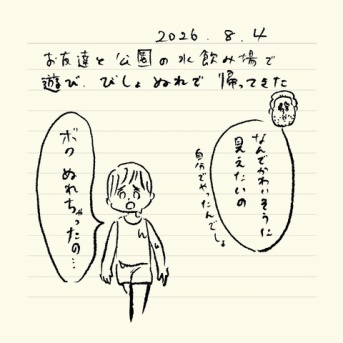 2026.8.4
お友達と公園の水飲み場で
遊び、びしょぬれで帰ってきた
なんでかわいそうに
見えたいの
自分でやったんでしょ
ボク
ぬれちゃったの…